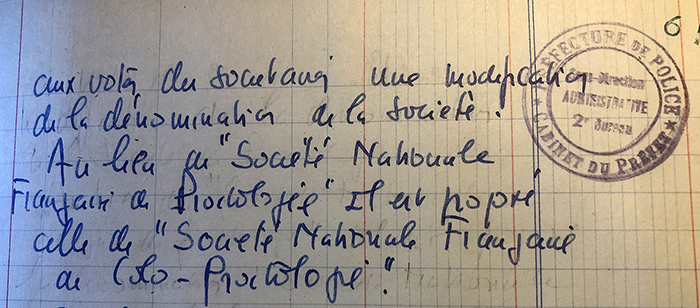 aux votes des sociétaires une modification
de la dénomination de la société.
Au lieu de "Société Nationale
Française de Proctologie" Il est proposé
celle de "Société Nationale Française
de Colo-Proctologie".
PREFECTURE DE POLICE
Sous-Direction
ADMINISTRATIVE
2e Bureau
CABINET DU PREFET
6